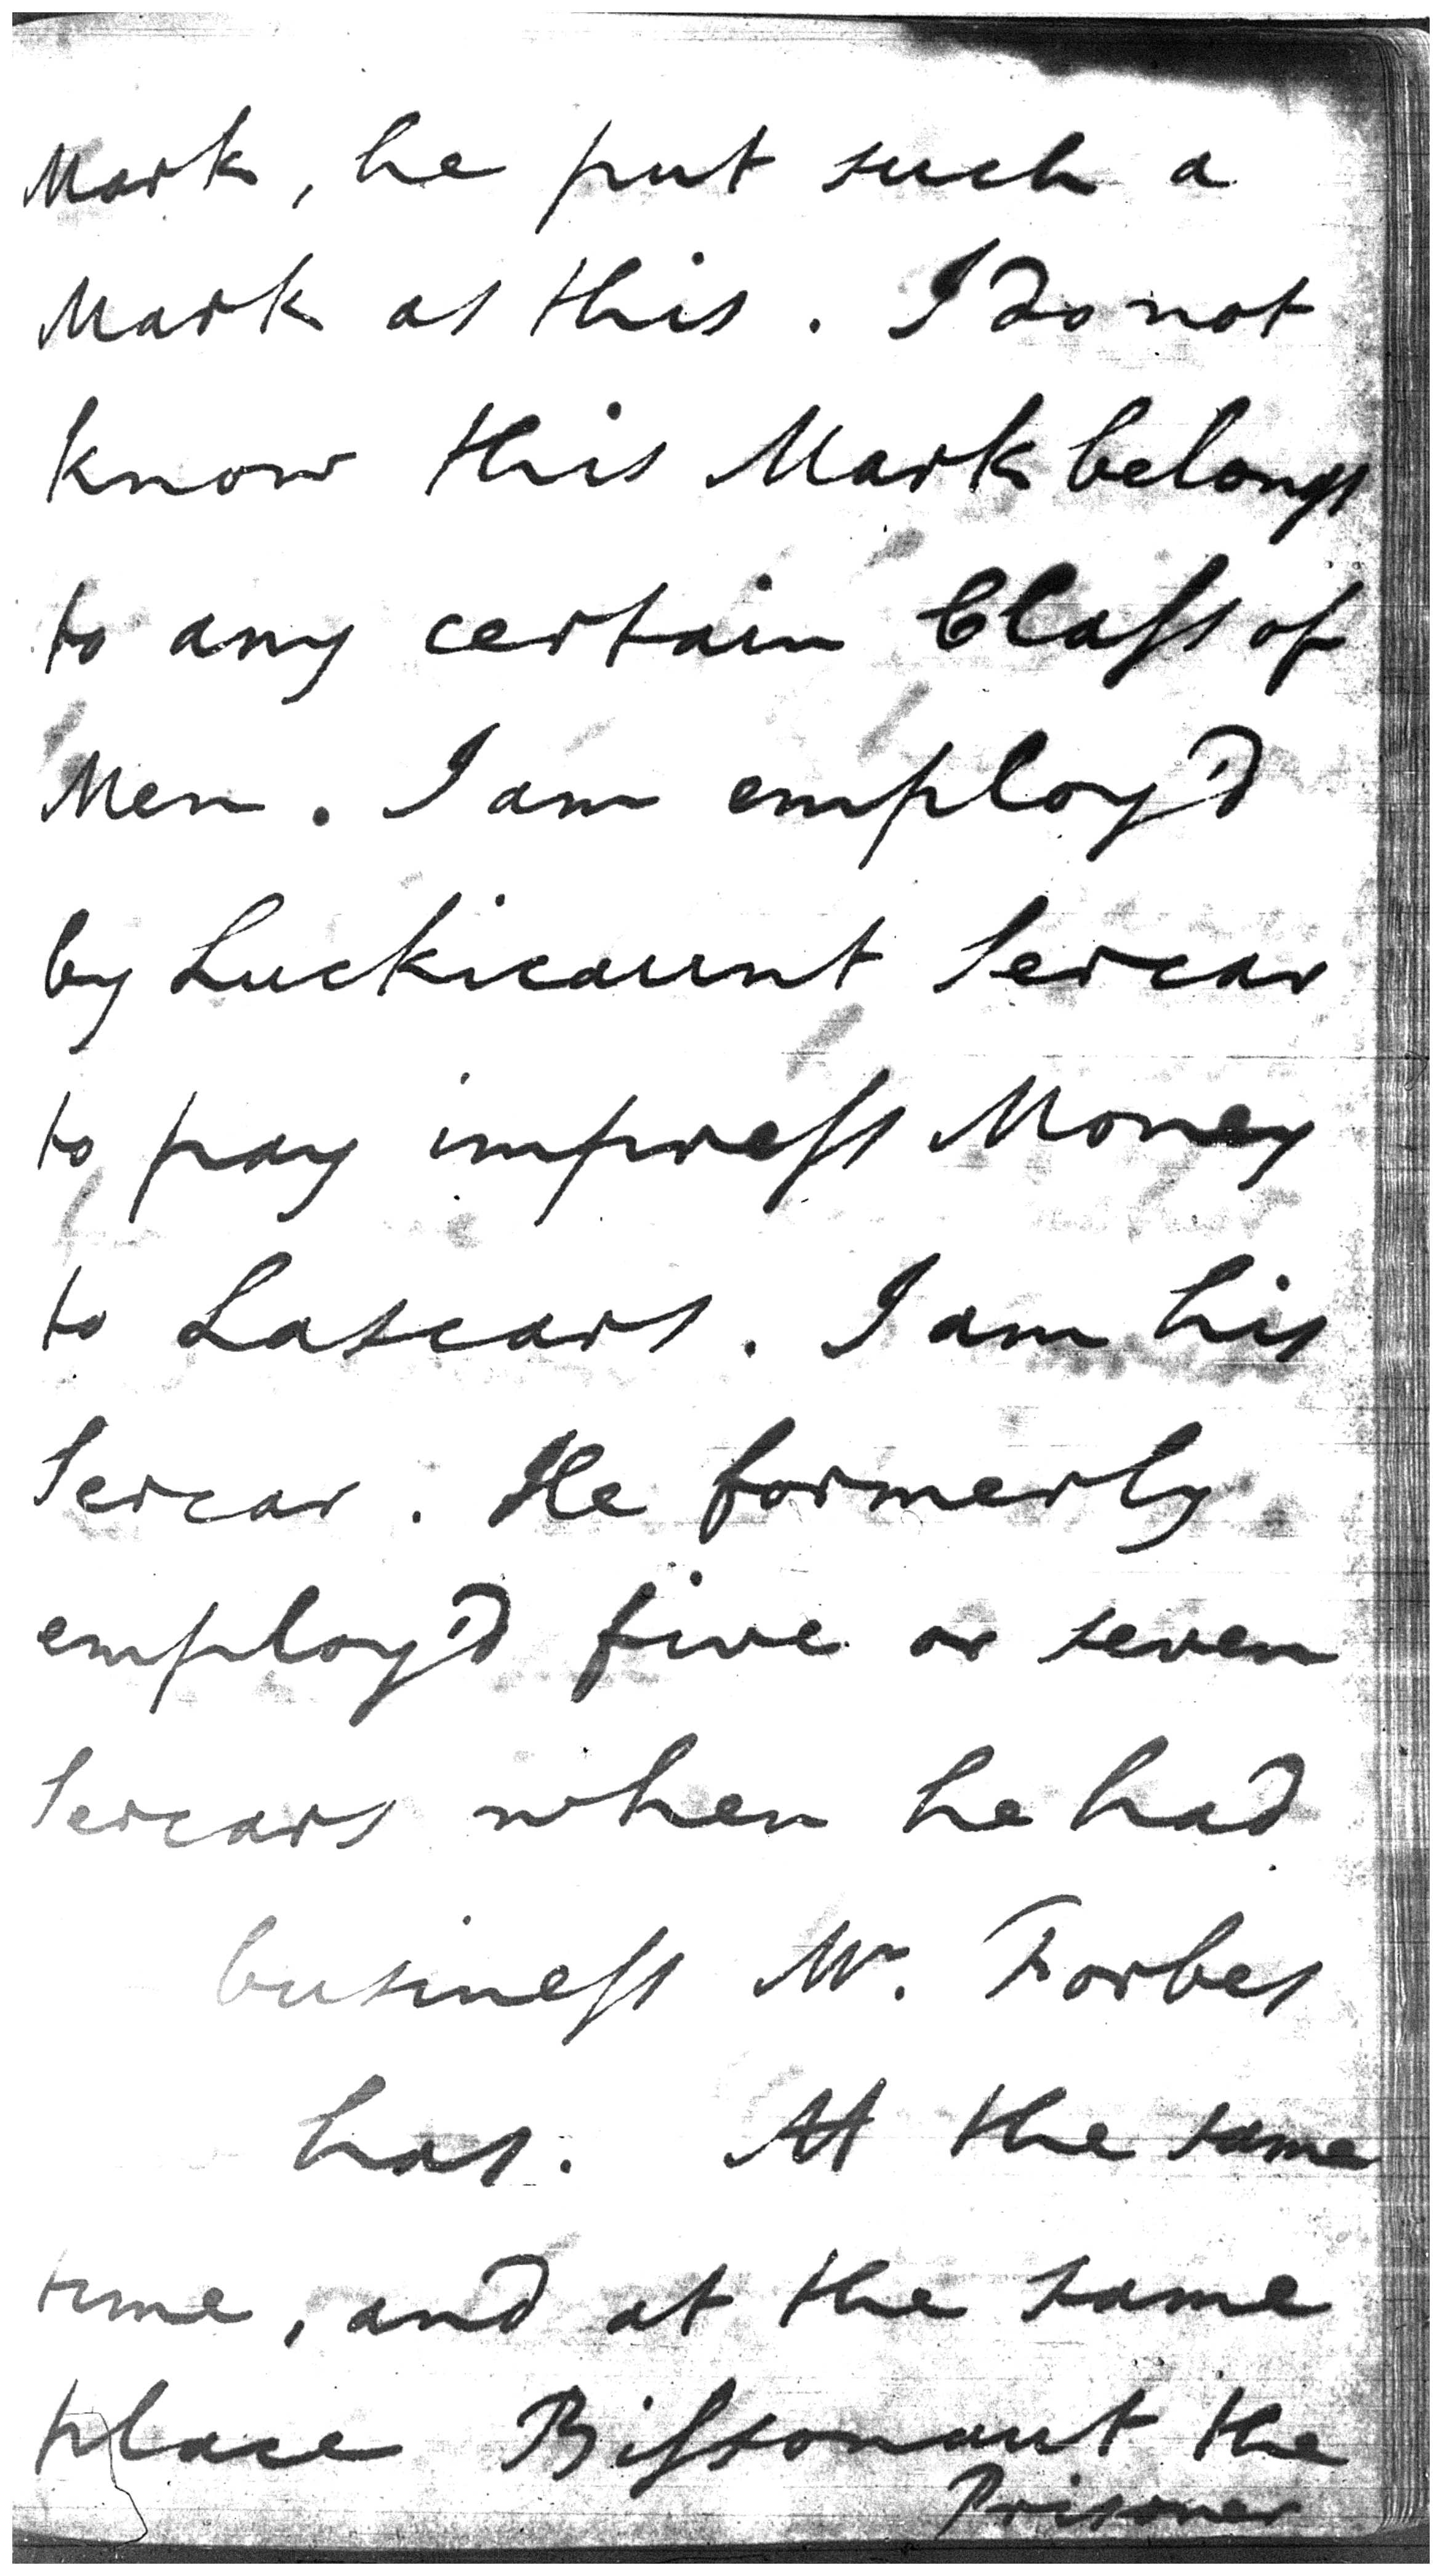 Mark, he put such a
Mark as this. I do not
know this Mark belongs
to any certain Claſs of
Men. I am employ'd
by Luckicaunt Sercar
to pay impreſs Money
to Lascars. I am his
Sercar. He formerly
employ'd five or seven
Sercars when he had
business Mr. Forbes
has. At the same
time, and at the same
place Biſsonaut the
Prisoner